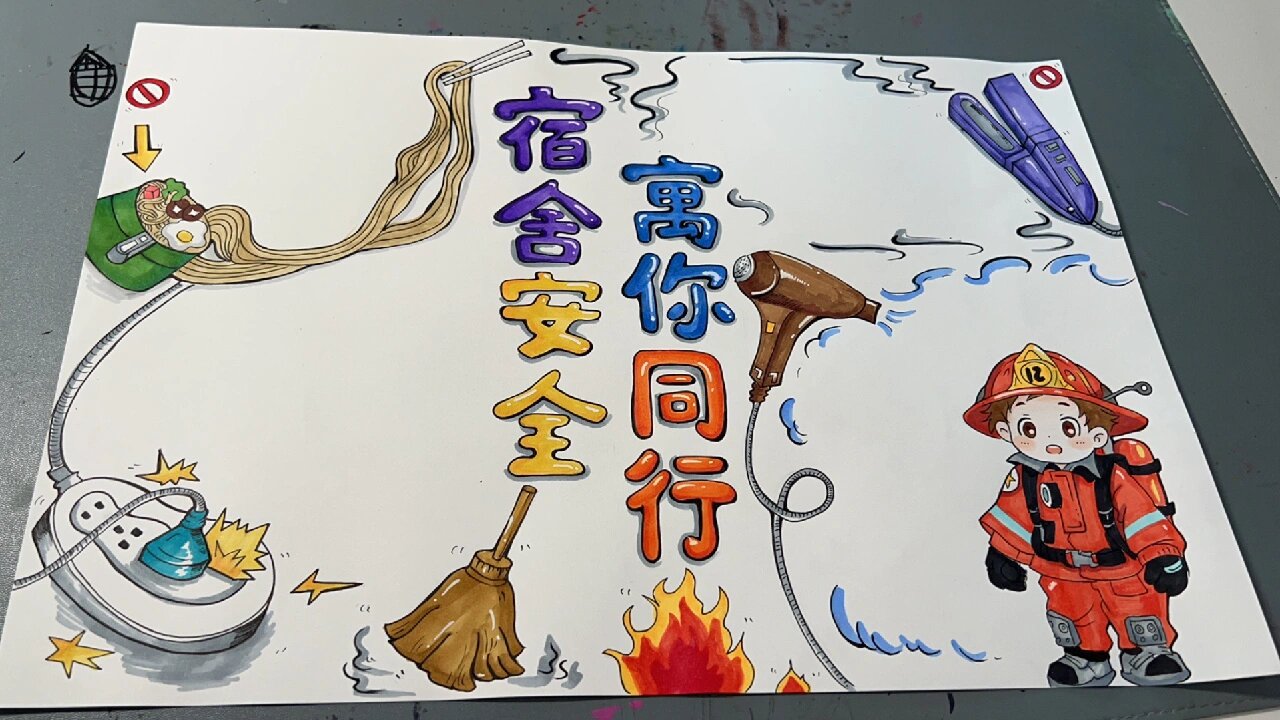 宿舍安全
寓你同行
12